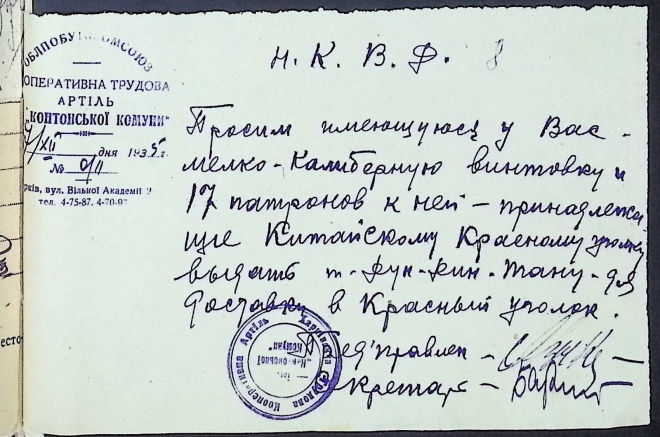 ОБЛПОБУТПРОМСОЮЗ
ОПЕРАТИВНА ТРУДОВА
АРТІЛЬ
"КОНТОНСЬКОЇ КОМУНИ"
/XII дня 1935 г.
№ 9/11
ків, вул. Вільної Академії
тел. 4-75-87, 4-70-97
Н. К. В. Д. 8
Просим имеющуюся у Вас -
мелко-калиберную винтовку и
17 патронов к ней - принадлежа
щие Китайскому Красному уголку
выдать т. Фун-Фин-Тану - для
доставки в Красный уголок.
ед'правлен -
кретарь -
Кооперативна Артіль
Трудова
Комуни"
есто-